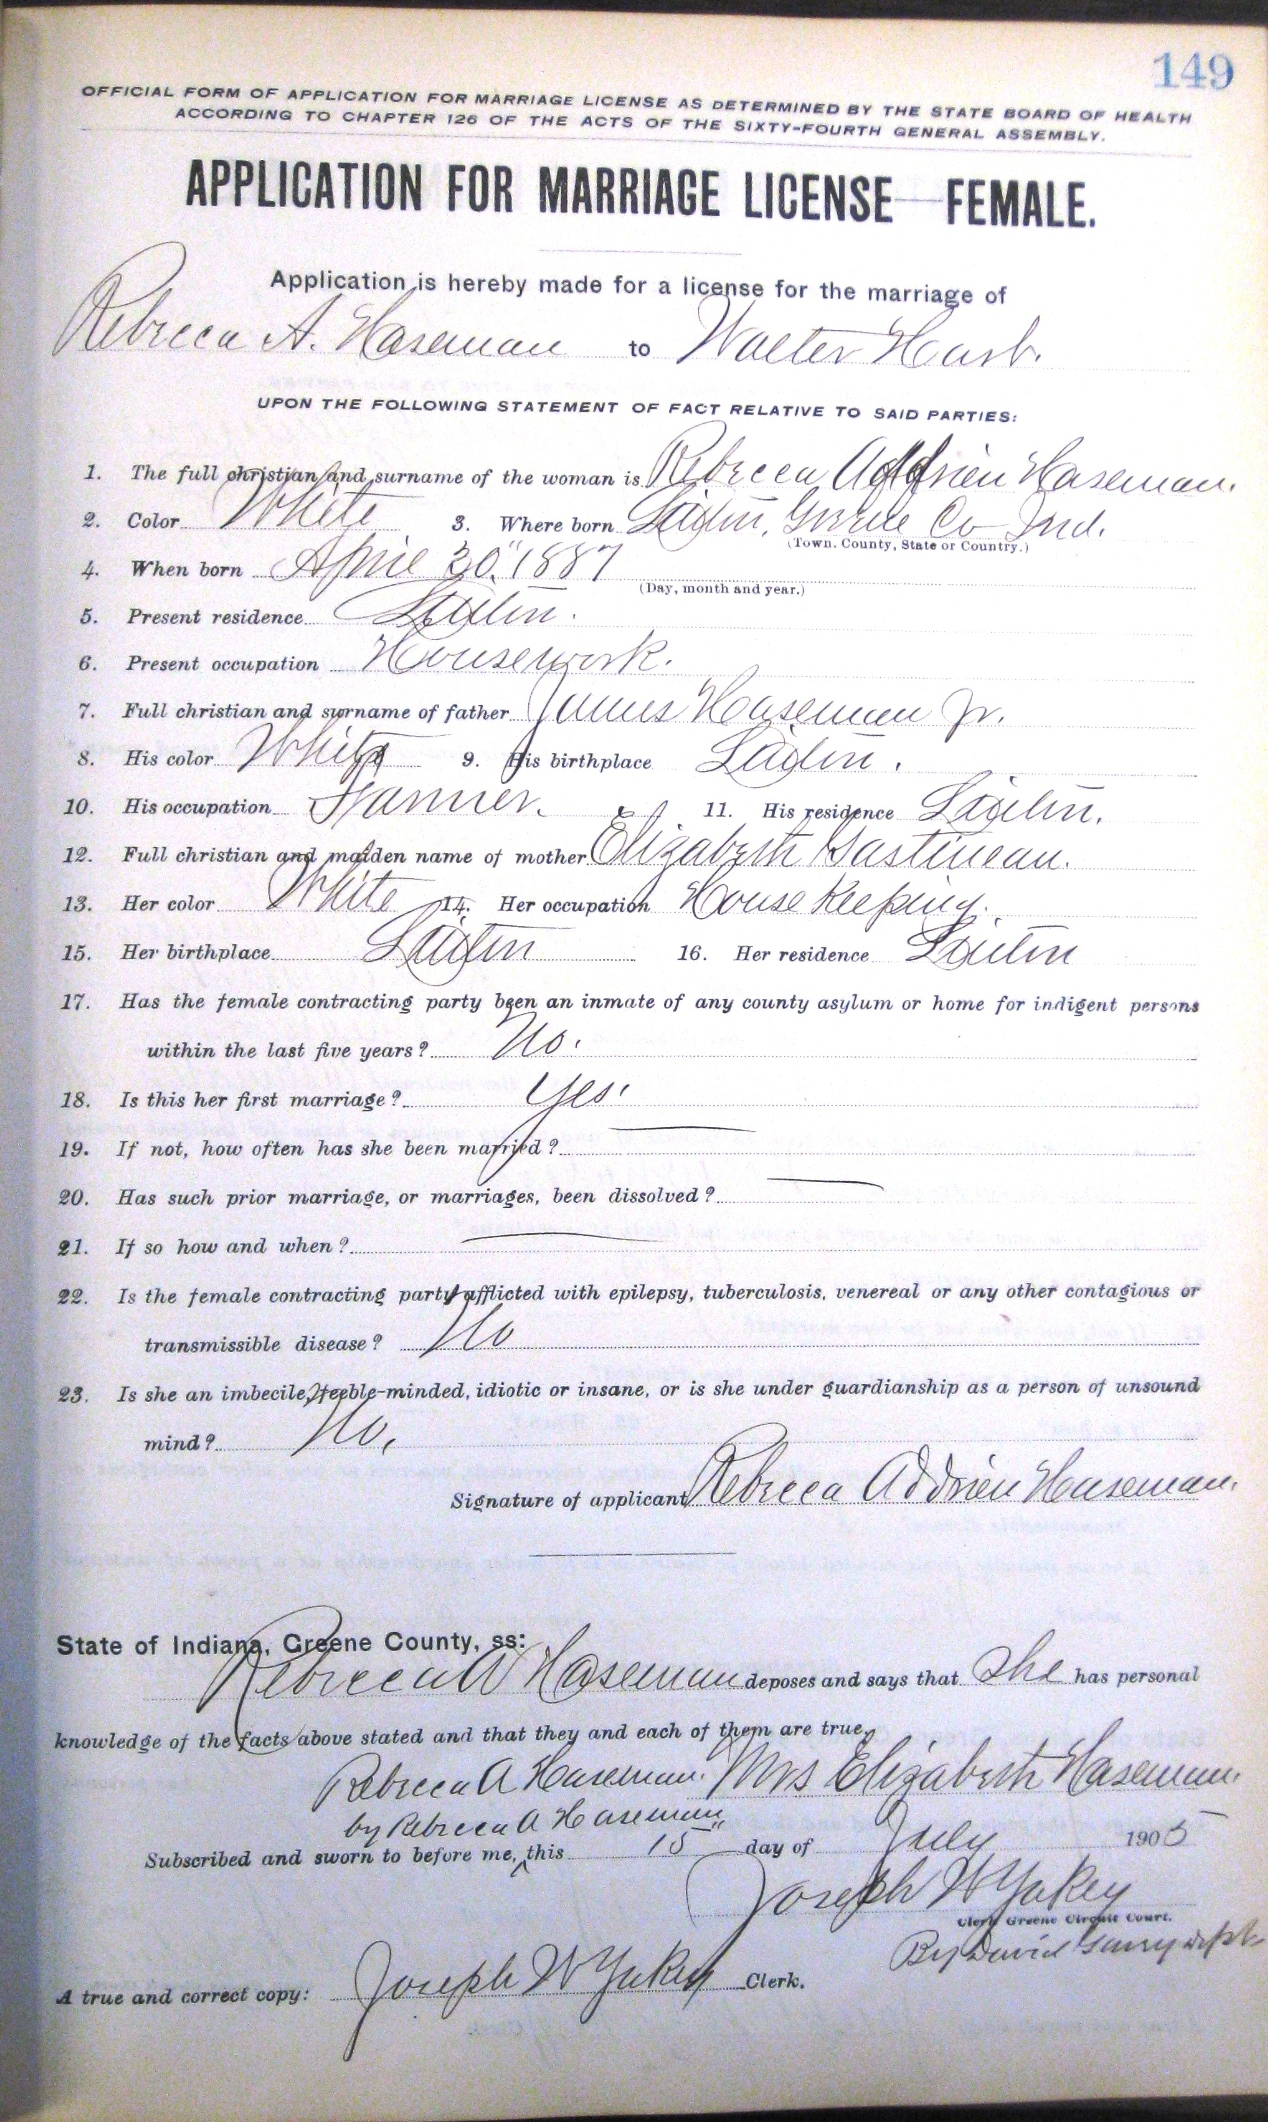 149
OFFICIAL FORM OF APPLICATION FOR MARRIAGE LICENSE AS DETERMINED BY THE STATE BOARD OF HEALTH
ACCORDING TO CHAPTER 126 OF THE ACTS OF THE SIXTY-FOURTH GENERAL ASSEMBLY.
APPLICATION FOR MARRIAGE LICENSE—FEMALE.
Application is hereby made for a license for the marriage of
Rebecca A. Haseman to Walter
UPON THE FOLLOWING STATEMENT OF FACT RELATIVE TO SAID PARTIES:
1. The full christian and surname of the woman is Rebecca Addrien Haseman.
2. Color White 3. Where born Linton, Greene Co Ind.
(Town, County, State or Country.)
4. When born April 30" 1887
(Day, month and year.)
5. Present residence Linton.
6. Present occupation Housework.
7. Full christian and surname of father James Haseman Jr.
8. His color White 9. His birthplace Linton.
10. His occupation Farmer. 11. His residence Linton.
12. Full christian and maiden name of mother Elizabeth Gastineau.
13. Her color White 14. Her occupation House Keeping.
15. Her birthplace Linton 16. Her residence Linton
17. Has the female contracting party been an inmate of any county asylum or home for indigent persons
within the last five years? No.
18. Is this her first marriage? Yes.
19. If not, how often has she been married?
20. Has such prior marriage, or marriages, been dissolved?
21. If so how and when?
22. Is the female contracting party afflicted with epilepsy, tuberculosis, venereal or any other contagious or
transmissible disease? No
23. Is she an imbecile, feeble-minded, idiotic or insane, or is she under guardianship as a person of unsound
mind? No.
Signature of applicant Rebecca Addrien Haseman.
State of Indiana, Greene County, ss:
Rebecca A Haseman deposes and says that She has personal
knowledge of the facts above stated and that they and each of them are true.
Rebecca A Haseman. Mrs Elizabeth Haseman.
by Rebecca A Haseman
Subscribed and sworn to before me, this 15" day of July 1905
Joseph W Yakey
Clerk Greene Circuit Court.
By David
A true and correct copy: Joseph W Yakey Clerk.